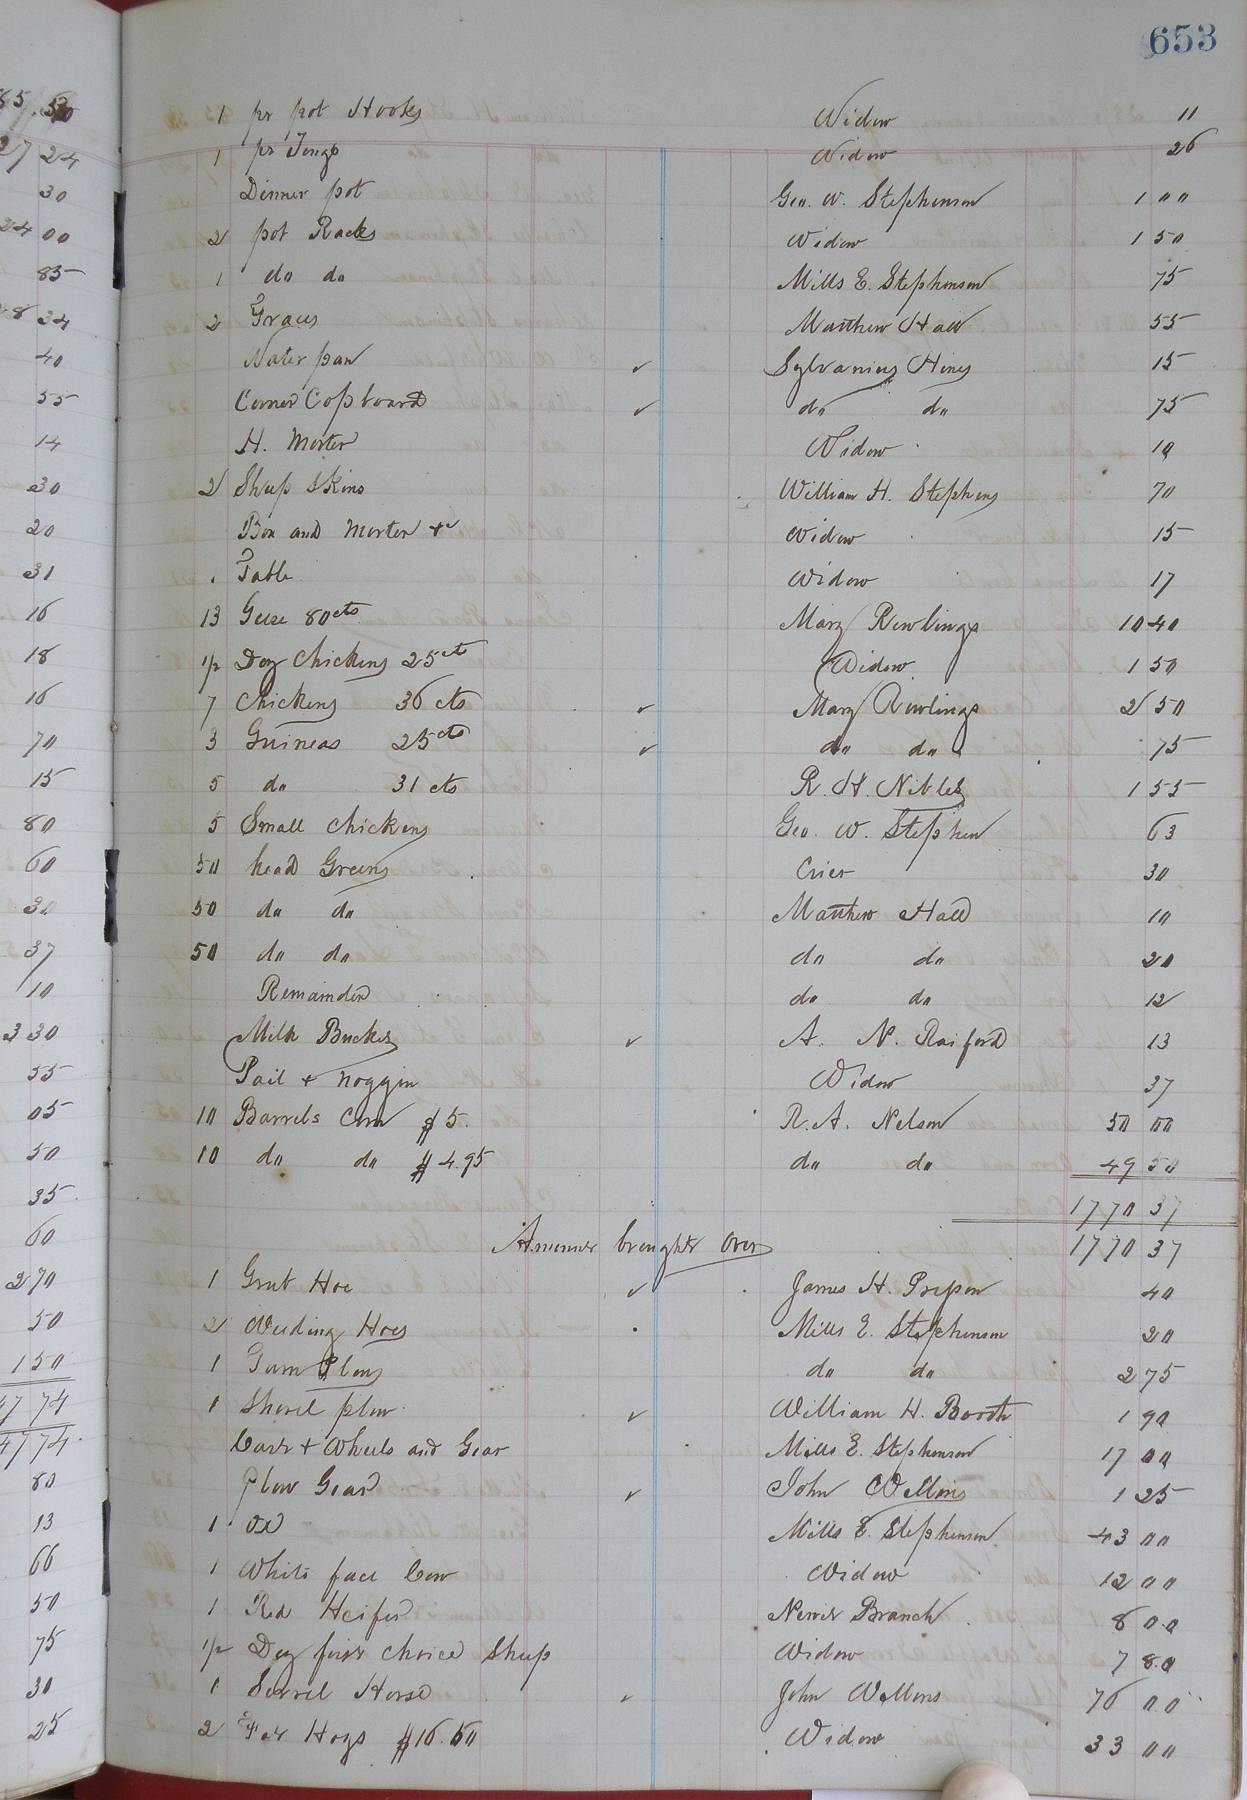 653
1 pr pot Hooks Widow 11
1 pr Tongs Widow 26
Dinner pot Geo. W. Stephenson 1 00
2 pot Racks Widow 1 50
1 do do Mills E. Stephenson 75
2 Matthew Hall 55
Water pan ✓ Sylvanius Hines 15
Corner Copboard ✓ do do 75
H. Morter Widow 10
2 Sheep Skins William H. Stephens 70
Box and Morter +c Widow 15
1 Table Widow 17
13 Geese 80cts Mary Rowlings 10 40
1/2 Doz Chickens 25ct Widow 1 50
7 Chickens 36 cts ✓ Mary Rowlings 2 50
3 Guineas 25cts ✓ do do 75
5 do 31 cts R. H. Niblet 1 55
5 Small Chickens Geo. W. Stephen 63
50 head Greens Crier 30
50 do do Matthew Hall 10
50 do do do do 20
Remainder do do 12
Milk Bucket ✓ A. N. Raiford 13
Pail + Noggin Widow 37
10 Barrels Corn $5. R. A. Nelson 50 00
10 do do $4.95 do do 49 50
1770 37
Ammount brought over 1770 37
1 Grub Hoe ✓ James H. 40
2 Weeding Hoes Mills E. Stephenson 20
1 Turn Plow do do 2 75
1 Shovel plow ✓ William H. Booth 1 90
Cart + Wheels and Gear Mills E. Stephenson 17 00
Plow Gear ✓ John Wellons 1 25
1 Ox Mills E. Stephenson 43 00
1 White face Cow Widow 12 00
1 Red Heifer Newit Branch 8 00
1/2 Doz first choice Sheep Widow 7 80
1 Sorrel Horse ✓ John Wellons 76 00
2 Fat Hogs $16.50 Widow 33 00